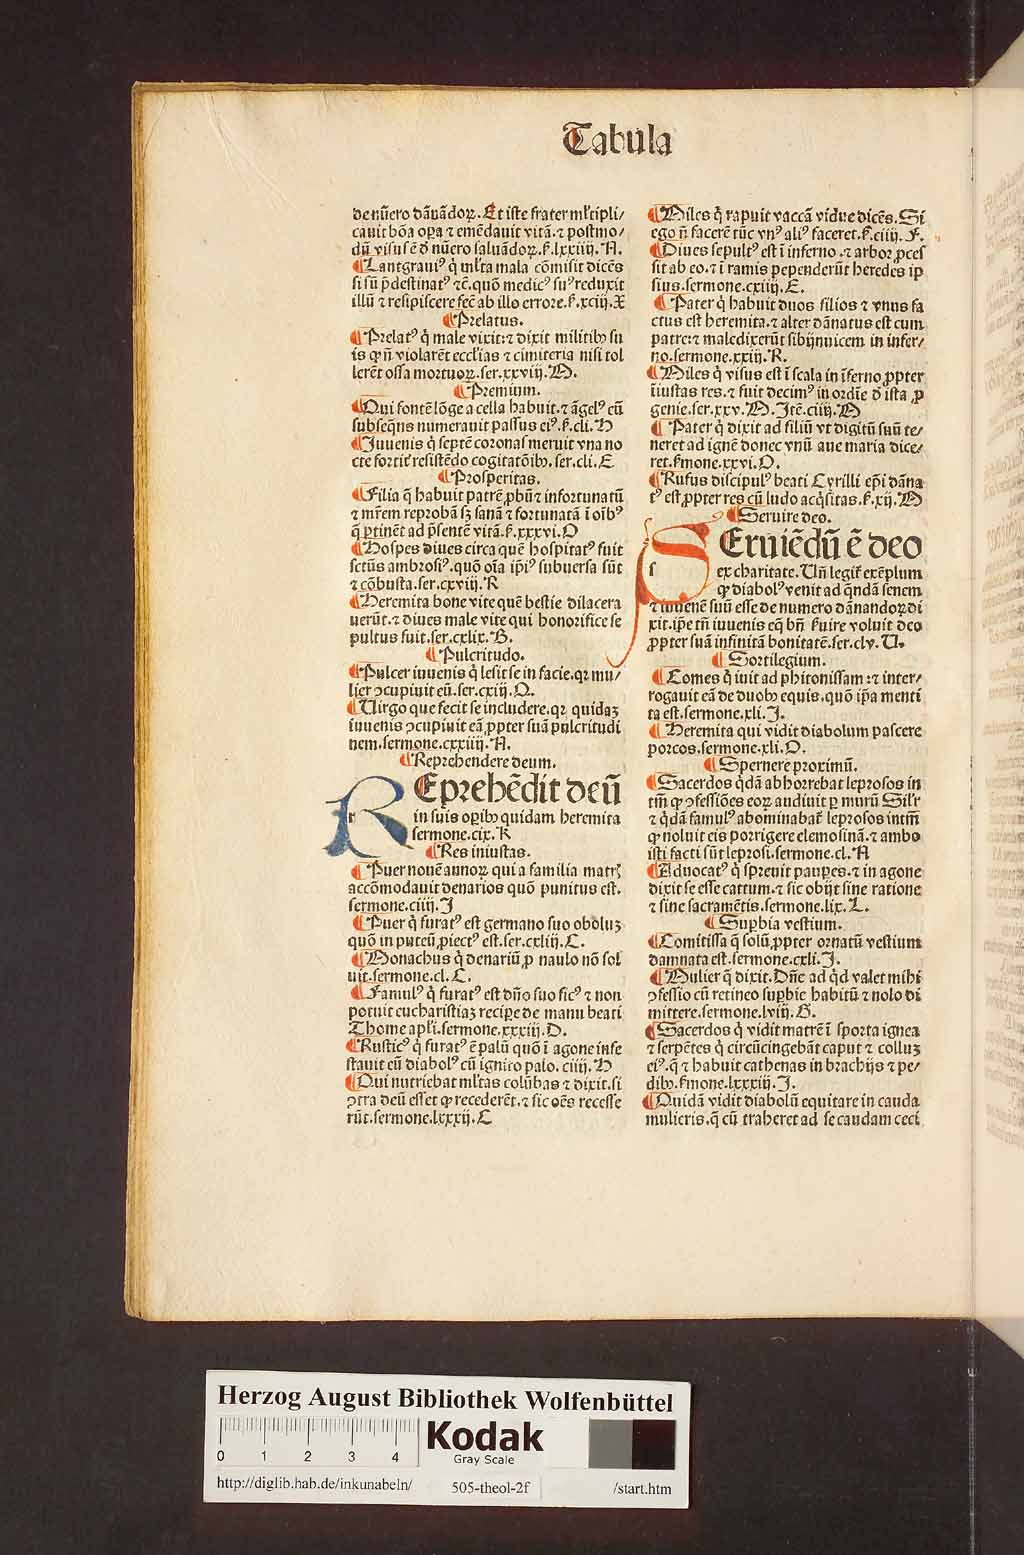 Tabula
de nũero dãnãdoꝝ. Et iste frater ml̃tipli/
cauit bõa oꝑa ⁊ emẽdauit vitã. ⁊ postmo/
dũ visus ẽ ð nũero saluãdoꝝ. s̃. lxxiiij. A.
¶ Lantgrauiꝰ q̇ ml̃ta mala cõmisit dicẽs
si sũ p̃destinatꝰ ⁊c̃. quõ medicꝰ suꝰ reduxit
illũ ⁊ resipiscere fec̃ ab illo errore. s̃. xciij. X
¶ Prelatus.
¶ Prelatꝰ q̇ male vixit: ⁊ dixit militibꝫ su
is ꝙ ñ violarẽt eccl̃ias ⁊ cimiteria nisi tol
lerẽt ossa mortuoꝝ. ser. xxviij. M.
¶ Premium.
¶ Qui fontẽ lõge a cella habuit. ⁊ ãgelꝰ eũ
subseq̃ns numerauit passus eiꝰ. s̃. cli. H
¶ Juuenis q̇ septẽ coronas meruit vna no
cte fortit̃ resistẽdo cogitatõibꝫ. ser. cli. E
¶ Prosperitas.
¶ Filia q̃ habuit patrẽ ꝓbũ ⁊ infortunatũ
⁊ m̃rem reprobã sꝫ sanã ⁊ fortunatã ĩ oĩbꝰ
q̃ ꝑtinẽt ad p̃sentẽ vitã. s̃. xxxvi. O
¶ Hospes diues circa quẽ hospitatꝰ fuit
sctũs ambrosiꝰ. quõ oĩa ip̃iꝰ subuersa sũt
⁊ cõbusta. ser. cxviij. R
¶ Heremita bone vite quẽ bestie dilacera
uerũt. ⁊ diues male vite qui honorifice se
pultus fuit. ser. cxlix. B.
¶ Pulcritudo.
¶ Pulcer iuuenis q̇ lesit se in facie. qꝛ mu/
lier ↄcupiuit eũ. ser. cxiij. Q.
¶ Uirgo que fecit se includere. qꝛ quidaꝫ
iuuenis ↄcupiuit eã ꝓpter suã pulcritudi
nem. sermone. cxxiiij. A.
¶ Reprehendere deum.
REprehẽdit deũ
in suis oꝑibꝫ quidam heremita
sermone. cix. K
¶ Res iniustas.
¶ Puer nouẽ annoꝝ qui a familia matr̃
accõmodauit denarios quõ punitus est.
sermone. ciiij. J
¶ Puer q̇ furatꝰ est germano suo oboluꝫ
quõ in puteũ ꝓiectꝰ est. ser. cxliij. C.
¶ Monachus q̇ denariũ ꝓ naulo nõ sol
uit. sermone. cl. C.
¶ Famulꝰ q̇ furatꝰ est dño suo ficꝰ ⁊ non
potuit eucharistiaꝫ recipe de manu beati
Thome apl̃i. sermone. xxxiij. D.
¶ Rusticꝰ q̇ furatꝰ ẽ palũ quõ ĩ agone infe
stauit eũ diabolꝰ cũ ignito palo. ciiij. H
¶ Qui nutriebat ml̃tas colũbas ⁊ dixit. si
ↄtra deũ esset ꝙ recederẽt. ⁊ sic oẽs recesse
rũt. sermone. lxxxij. C
¶ Miles q̇ rapuit vaccã vidue dicẽs. Si
ego ñ facerẽ tũc vnꝰ aliꝰ faceret. s̃. ciiij. F.
¶ Diues sepultꝰ est ĩ inferno. ⁊ arbor ꝓces
sit ab eo. ⁊ ĩ ramis pependerũt heredes ip
sius. sermone. cxiij. E.
¶ Pater q̇ habuit duos filios ⁊ vnus fa
ctus est heremita. ⁊ alter dãnatus est cum
patre: ⁊ maledixerũt sibijnuicem in infer/
no. sermone. xxiij. R.
¶ Miles q̇ visus est ĩ scala in ĩferno ꝓpter
ĩiustas res. ⁊ fuit decimꝰ in ordĩe ð ista ꝓ
genie. ser. xxv. M. Jtẽ. ciiij. M
¶ Pater q̇ dixit ad filiũ vt digitũ suũ te/
neret ad ignẽ donec vnũ aue maria dice/
ret. s̃mone. xxvi. O.
¶ Rufus discipulꝰ beati Cyrilli ep̃i dãna
tꝰ est ꝓpter res cũ ludo acq̇sitas. s̃. xij. M
¶ Seruire deo.
s SEruiẽdũ ẽ deo
ex charitate. Uñ legit̃ exẽplum
ꝙ diabolꝰ venit ad q̃ndã senem
⁊ iuuenẽ suũ esse de numero dãnandoꝝ di
xit. ip̃e tñ iuuenis eq̃ bñ s̃uire voluit deo
ꝓpter suã infinitã bonitatẽ. ser. clv. U.
¶ Sortilegium.
¶ Comes q̇ iuit ad phitonissam: ⁊ inter/
rogauit eã de duobꝫ equis. quõ ip̃a menti
ta est. sermone. xli. J.
¶ Heremita qui vidit diabolum pascere
porcos. sermone. xli. O.
¶ Spernere proximũ.
¶ Sacerdos q̇dã abhorrebat leprosos in
tm̃ ꝙ ↄfessiões eoꝝ audiuit ꝑ murũ Sil̃r
⁊ q̇dã famulꝰ abominabat̃ leprosos intm̃
ꝙ noluit eis porrigere elemosinã. ⁊ ambo
isti facti sũt leprosi. sermone. cl. A
¶ Aduocatꝰ q̇ spreuit pauꝑes. ⁊ in agone
dixit se esse cattum. ⁊ sic obijt sine ratione
⁊ sine sacramẽtis. sermone. lix. L.
¶ Suꝑbia vestium.
¶ Comitissa q̃ solũ ꝓpter ornatũ vestium
damnata est. sermone. cxli. J.
¶ Mulier q̃ dixit. Dñe ad q̇d valet mihi
ↄfessio cũ retineo suꝑbie habitũ ⁊ nolo di
mittere. sermone. lviij. G.
¶ Sacerdos q̇ vidit matrẽ ĩ sporta ignea
⁊ serpẽtes q̇ circũcingebãt caput ⁊ colluꝫ
eiꝰ. q̃ ⁊ habuit cathenas in brachijs ⁊ pe/
dibꝫ. s̃mone. lxxxiij. J.
¶ Quidã vidit diabolũ equitare in cauda
mulieris. q̃ cũ traheret ad se caudam ceci
Herzog August Bibliothek Wolfenbüttel
0 1 2 3 4
Kodak
Gray Scale
http://diglib.hab.de/inkunabeln/ 505-theol-2f /start.htm